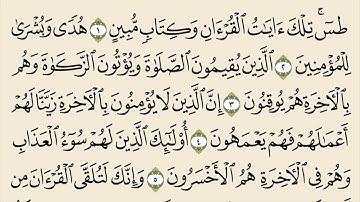 طسٓ ۚ تِلۡكَ ءَايَٰتُ ٱلۡقُرۡءَانِ وَكِتَابٖ مُّبِينٍ ١ هُدٗى وَبُشۡرَىٰ
لِلۡمُؤۡمِنِينَ ٢ ٱلَّذِينَ يُقِيمُونَ ٱلصَّلَوٰةَ وَيُؤۡتُونَ ٱلزَّكَوٰةَ وَهُم
بِٱلۡأٓخِرَةِ هُمۡ يُوقِنُونَ ٣ إِنَّ ٱلَّذِينَ لَا يُؤۡمِنُونَ بِٱلۡأٓخِرَةِ زَيَّنَّا لَهُمۡ
أَعۡمَٰلَهُمۡ فَهُمۡ يَعۡمَهُونَ ٤ أُوْلَٰٓئِكَ ٱلَّذِينَ لَهُمۡ سُوٓءُ ٱلۡعَذَابِ
وَهُمۡ فِي ٱلۡأٓخِرَةِ هُمُ ٱلۡأَخۡسَرُونَ ٥ وَإِنَّكَ لَتُلَقَّى ٱلۡقُرۡءَانَ مِن